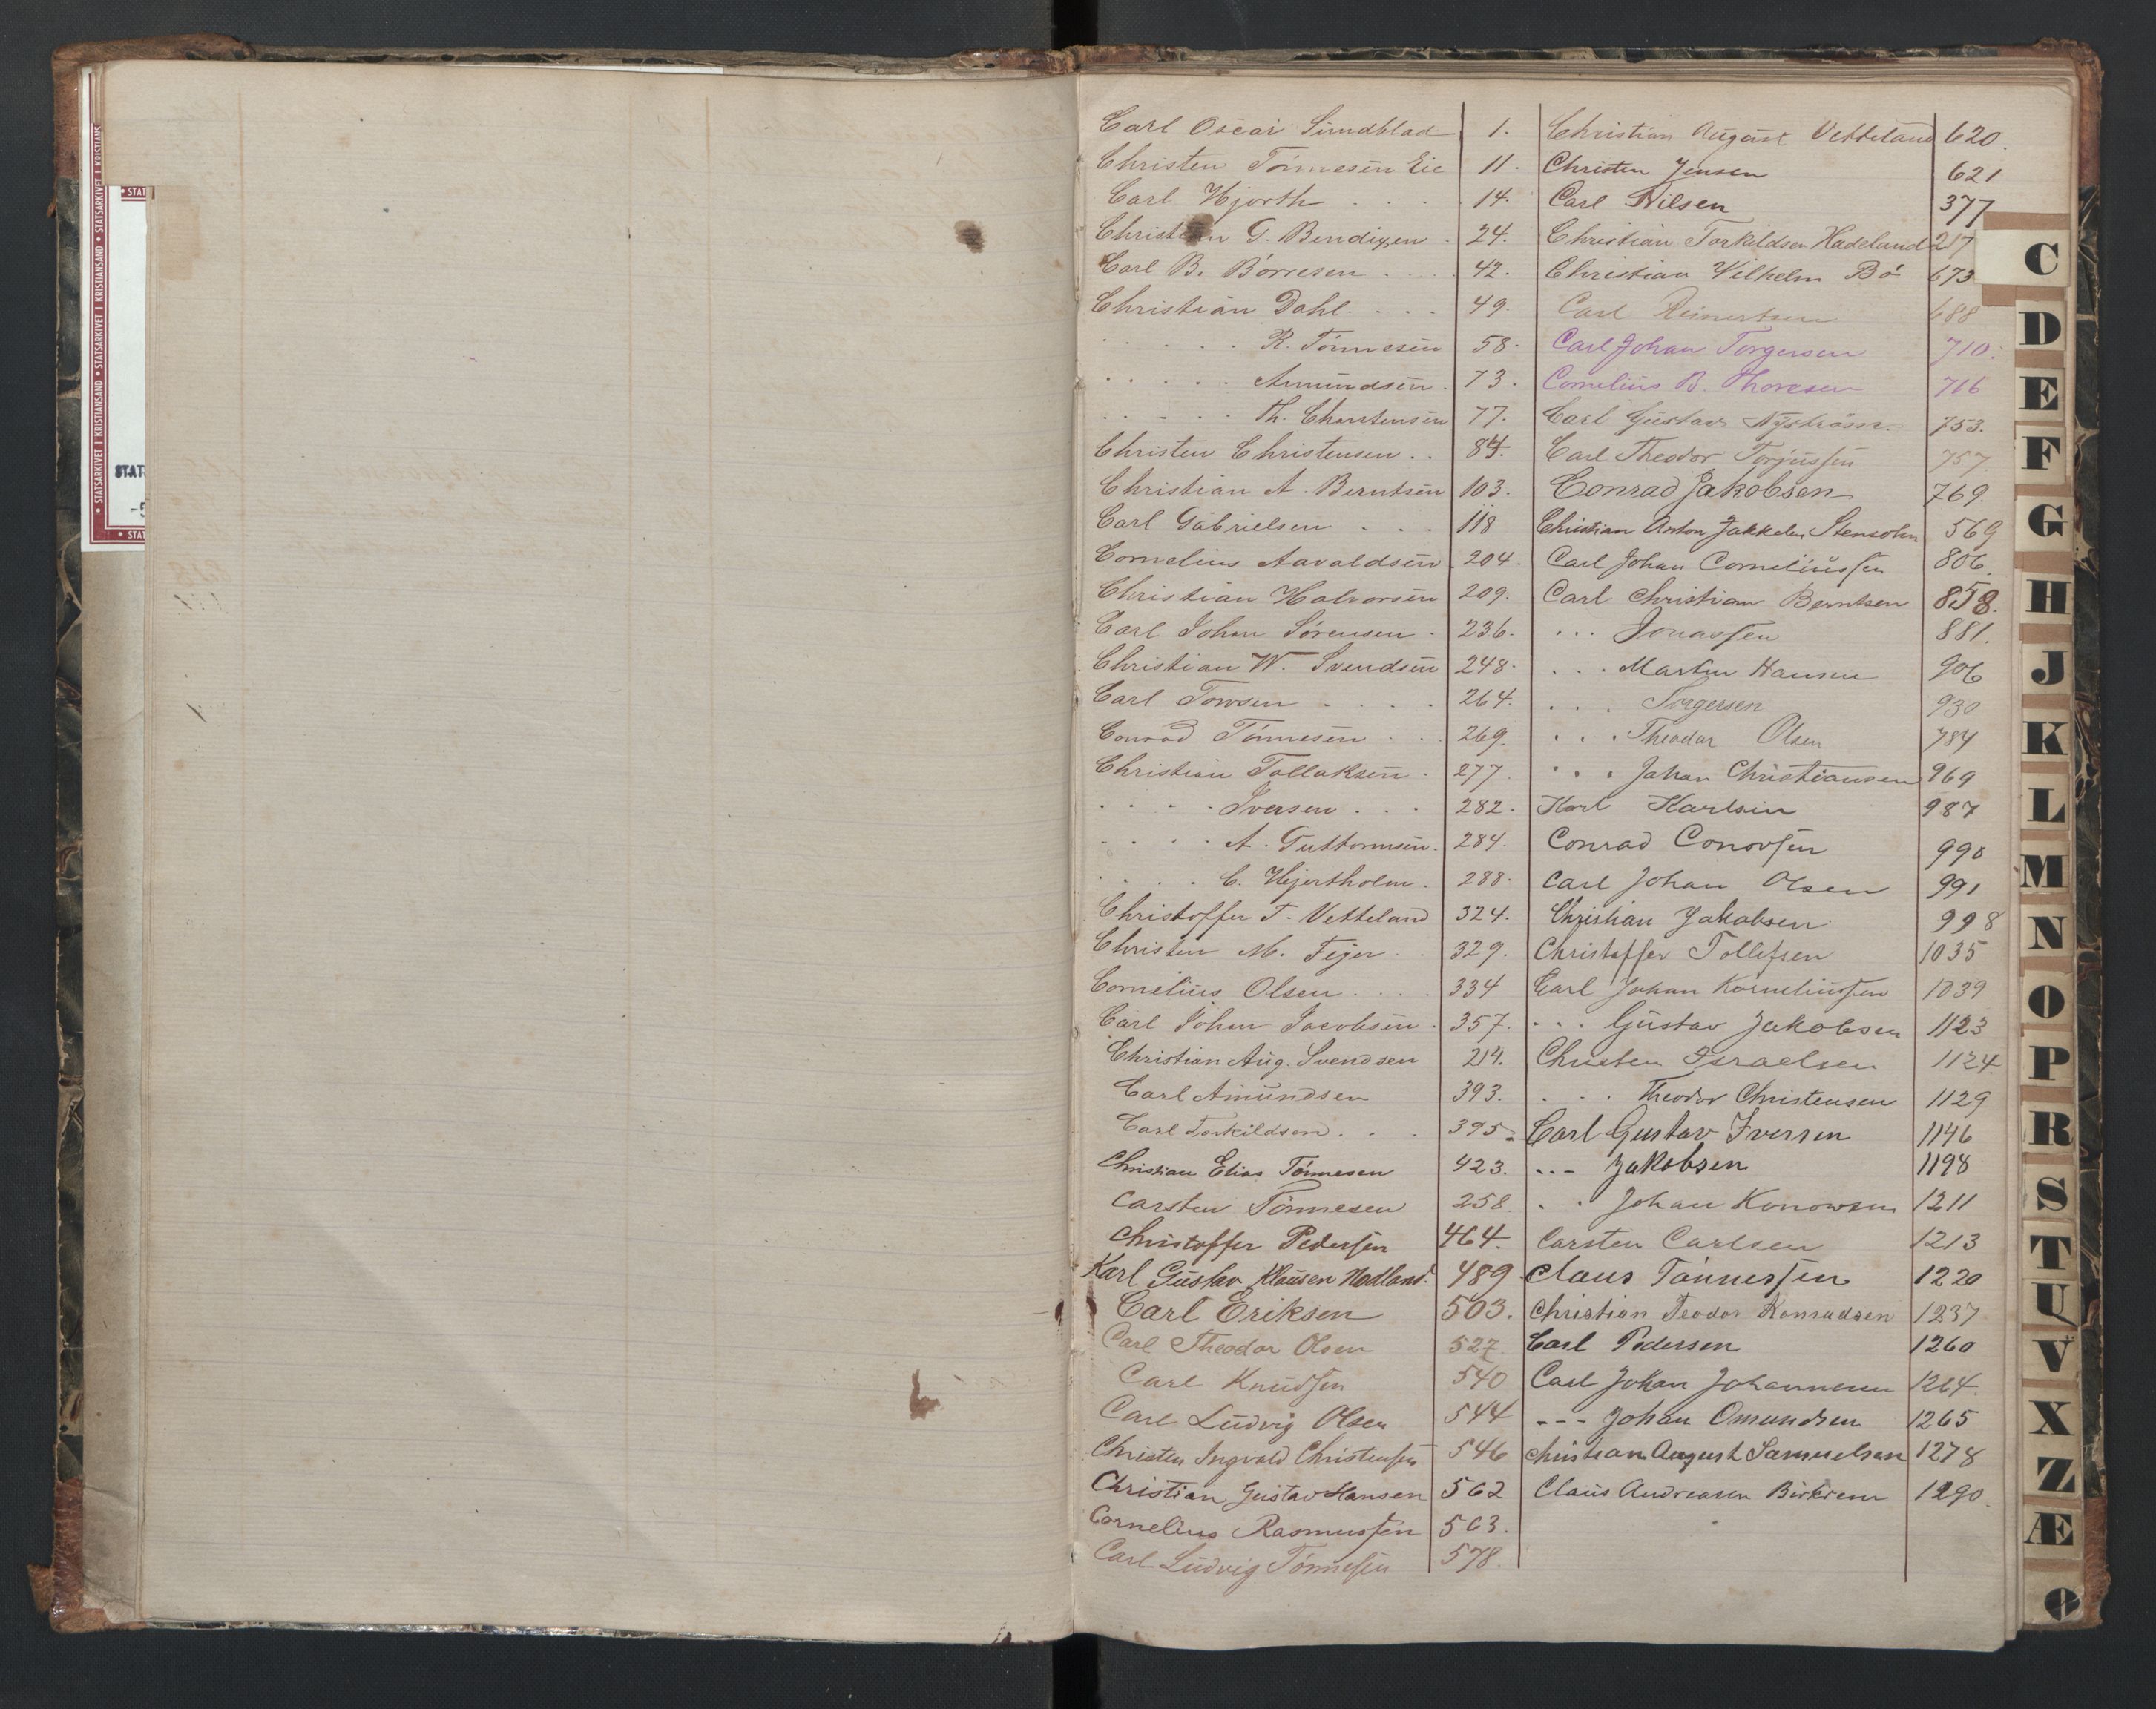 Carl Oscar Sundblad 1.
Christen Tönnesen Eie 11.
Carl Hjorth . . . . 14.
Christian G. Bendixen . 24.
Carl B. Börresen . . . . 42.
Christian Dahl . . . . 49.
. . . . . R. Tönnesen 58.
. . . . . Amundsen . 73.
. . . . . Th. Charstensen 77.
Christen Christensen . . 84.
Christian A. Berntsen 103.
Carl Gabrielsen . . . 118
Cornelius Aavaldsen 204.
Christian Halvorsen 209.
Carl Johan Sörensen . 236.
Christian W. Svendsen 248.
Carl Towsen . . . . 264.
Conrad Tönnesen . . . 269.
Christian Tallaksen . 277.
. . . . Iversen . . . 282.
. . . . A. Guttormsen. 284.
. . . . C. Hjertholm . 288.
Christoffer T. Vetteland 324.
Christen M. Fejer . . 329.
Cornelius Olsen . . . . 334
Carl Johan Jacobsen . 357.
Christian Aug. Svendsen 214.
Carl Amundsen 393.
Carl Torkildsen . . . 395.
Christian Elias Tönnesen 423.
Carsten Tönnesen 258.
Christoffer Pedersen 464.
Karl Gustav Klausen Hodland. 489
Carl Eriksen 503.
Carl Theodor Olsen 527.
Carl Knudsen 540
Carl Ludvig Olsen 544
Christen Ingvald Christensen 546
Christian Gustav Hansen 562
Cornelius Rasmussen 563.
Carl Ludvig Tönnesen 578.
Christian August Vetteland 620.
Christen Jensen 621
Carl Nilsen 377
Christian Torkildsen Hadeland 217
Christian Vilhelm Bö 673
Carl Reinertsen 688
Carl Johan Torgersen 710.
Cornelius B. Thoresen 716
Carl Gustav Nyström. 753.
Carl Theodor Torjussen 757.
Conrad Jakobsen 769.
Christian Anton Jakkelen Stensohn 569
Carl Johan Corneliussen 806.
Carl Christian Berntsen 858.
. . . Jonassen 881.
. . . Martin Hansen 906
. . . Torgersen 930
. . . Theodor Olsen 784
. . . Johan Christiansen 969
Karl Karlsen 987
Conrad Conovsen 990
Carl Johan Olsen 991
Christian Jakobsen 998
Christoffer Tollefsen 1035
Carl Johan Korneliussen 1039
. . . Gustav Jakobsen 1123
Christen Israelsen 1124.
. . . Theodor Christensen 1129
Carl Gustav Iversen 1146
. . . Jakobsen 1198
. . Johan Konowsen 1211
Carsten Carlsen 1213
Claus Tönnessen 1220
Christian Teodor Konradsen 1237
Carl Pedersen 1260
Carl Johan Johannesen 1264.
--- Johan Omundsen 1265
Christian August Samuelsen 1278
Claus Andreasen Birkrem 1290.
C
D
E
F
G
H
J
K
L
M
N
O
P
R
S
T
U
V
X
Z
Æ
Ø
• STATSARKIVET I KRISTIANSAND • STATSARKIVET I KRISTIANSAND • STATSARKIVET I KRISTIANS
• STAT
STAT
• STAT